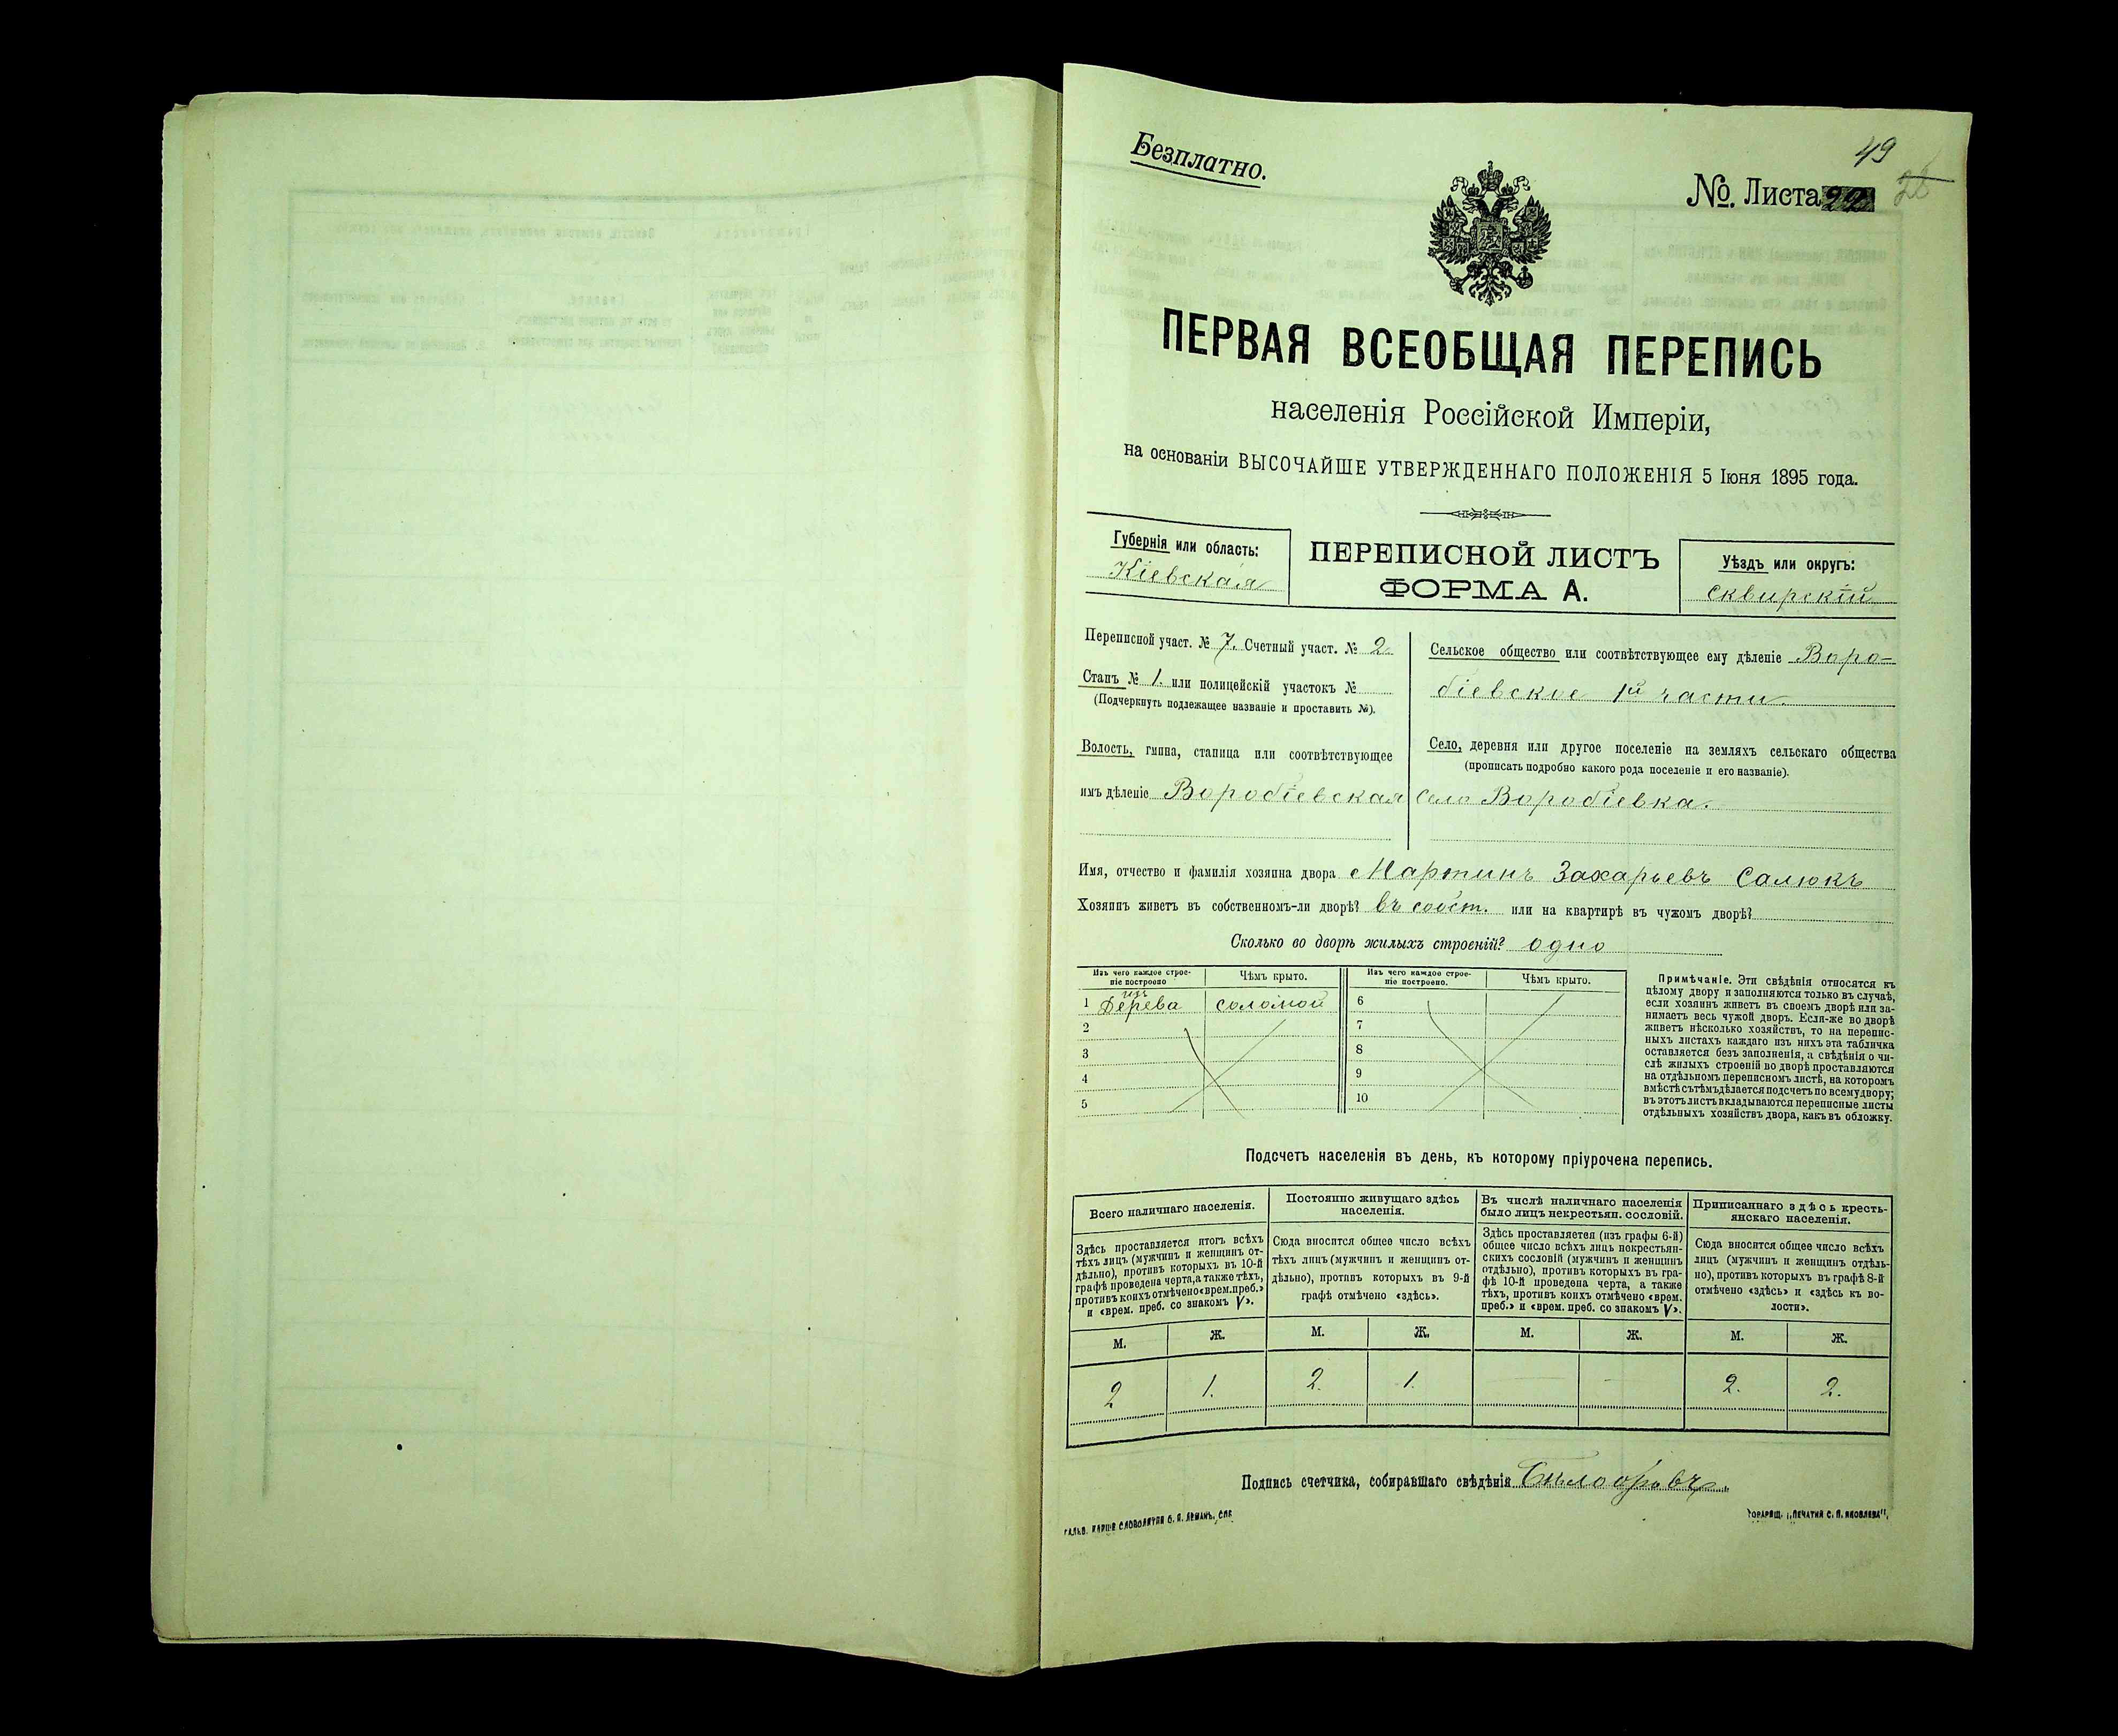 Безплатно.
49
№ Листа 22
28
ПЕРВАЯ ВСЕОБЩАЯ ПЕРЕПИСЬ
населенія Россійской Имперіи,
на основаніи ВЫСОЧАЙШЕ УТВЕРЖДЕННАГО ПОЛОЖЕНІЯ 5 Іюня 1895 года.
Губернія или область:
Кіевская
ПЕРЕПИСНОЙ ЛИСТЪ
ФОРМА А.
Уѣздъ или округъ:
Сквирскій
Переписной участ. № 7. Счетный участ. № 2
Станъ № 1. или полицейскій участокъ №
(Подчеркнуть подлежащее названіе и проставить №).
Волость, гмина, станица или соотвѣтствующее
имъ дѣленіе Воробіевская
Сельское общество или соотвѣтствующее ему дѣленіе Воро-
біевское 1й части.
Село, деревня или другое поселеніе на земляхъ сельскаго общества
(прописать подробно какого рода поселеніе и его названіе).
село Воробіевка.
Имя, отчество и фамилія хозяина двора Мартинъ Захарьевъ Салюкъ
Хозяинъ живетъ въ собственномъ-ли дворѣ? въ собст. или на квартирѣ въ чужомъ дворѣ?
Сколько во дворѣ жилыхъ строеній? одно
Изъ чего каждое строе-
ніе построено
Чѣмъ крыто.
Изъ чего каждое строе-
ніе построено.
Чѣмъ крыто.
1 изъ Дерева соломой
2
3
4
5
6
7
8
9
10
Примѣчаніе. Эти свѣдѣнія относятся къ
цѣлому двору и заполняются только въ случаѣ,
если хозяинъ живетъ въ своемъ дворѣ или за-
нимаетъ весь чужой дворъ. Если-же во дворѣ
живетъ нѣсколько хозяйствъ, то на перепис-
ныхъ листахъ каждаго изъ нихъ эта табличка
оставляется безъ заполненія, а свѣдѣнія о чи-
слѣ жилыхъ строеній во дворѣ проставляются
на отдѣльномъ переписномъ листѣ, на которомъ
вмѣстѣ съ тѣмъ дѣлается подсчетъ по всему двору;
въ этотъ листъ вкладываются переписные листы
отдѣльныхъ хозяйствъ двора, какъ въ обложку.
Подсчетъ населенія въ день, къ которому пріурочена перепись.
Всего наличнаго населенія.
Постоянно живущаго здѣсь
населенія.
Въ числѣ наличнаго населенія
было лицъ некрестьян. сословій.
Приписаннаго здѣсь кресть-
янскаго населенія.
Здѣсь проставляется итогъ всѣхъ
тѣхъ лицъ (мужчинъ и женщинъ от-
дѣльно), противъ которыхъ въ 10-й
графѣ проведена черта, а также тѣхъ,
противъ коихъ отмѣчено «врем. преб.»
и «врем. преб. со знакомъ V».
Сюда вносится общее число всѣхъ
тѣхъ лицъ (мужчинъ и женщинъ от-
дѣльно), противъ которыхъ въ 9-й
графѣ отмѣчено «здѣсь».
Здѣсь проставляется (изъ графы 6-й)
общее число всѣхъ лицъ некрестьян-
скихъ сословій (мужчинъ и женщинъ
отдѣльно), противъ которыхъ въ гра-
фѣ 10-й проведена черта, а также
тѣхъ, противъ коихъ отмѣчено «врем.
преб.» и «врем. преб. со знакомъ V».
Сюда вносится общее число всѣхъ
лицъ (мужчинъ и женщинъ отдѣль-
но), противъ которыхъ въ графѣ 8-й
отмѣчено «здѣсь» и «здѣсь къ во-
лости».
М. Ж. М. Ж. М. Ж. М. Ж.
2 1. 2. 1. — — 2. 2.
Подпись счетчика, собиравшаго свѣдѣнія